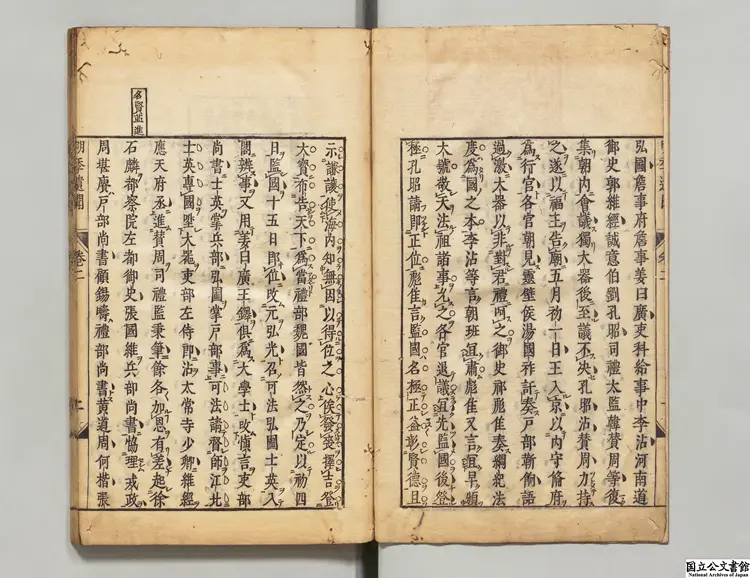 弘圖詹事府詹事姜曰廣吏科給事中李沾河南道
御史郭維經誠意伯劉孔昭司禮太監韓贊周等復
集朝內會議獨大器後至議不決孔昭沾贊周力持
之遂以福王告廟五月初一日王入京以內守備府
為行宮各官朝見靈壁侯湯國祚訐奏戶部
過激大器以非對君禮呵之御史祁彪佳奏綱紀法
度為國之本李沾等言朝班宜肅彪佳又言宜早頒
大號敬天法祖諸事允之各官退議宜先監國後登
極孔昭請即正位彪佳言監國名極正益彰賢德且
示謙讓使海內知無因以得位之心俟發喪擇吉登
大寶布告天下為當禮部魏國皆然之乃定以初四
日監國十五日即位改元弘光召可法弘圖士英入
閣辦事又用姜曰廣王鐸俱為大學士改慎言吏部
尚書士英掌兵部弘圖掌戶部事可法請督師江北
士英專國聖大器吏部左侍郎沾太常寺少卿維經
應天府丞進贊周司禮監秉筆餘各加恩有差起徐
石麟都察院左都御史張國維兵部尚書協理戎政
周堪賡戶部尚書顧錫疇禮部尚書黃道周何楷張
名賢並進
明季遺聞
卷二
国立公文書館
National Archives of Japan